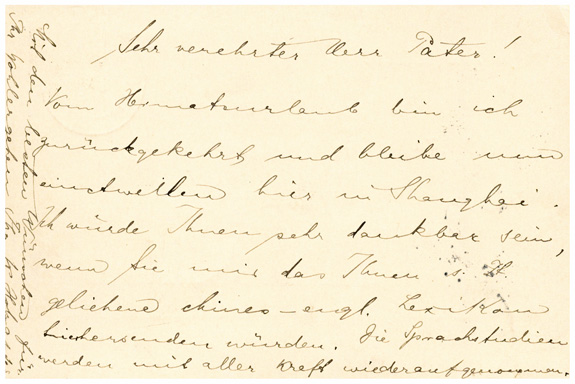 Sehr verehrter Herr Pater!
Vom Heimatsurlaub bin ich
zurückgekehrt und bleibe nun
einstweilen hier in Shanghai.
Ich würde Ihnen sehr dankbar sein,
wenn Sie mir das Ihnen s. Zt.
geliehene chines-engl. Lexikon
hierhersenden würden. Die Sprachstudien
werden mit aller Kraft wiederaufgenommen.
Mit den besten Wünschen für
Ihr Wohlergehen